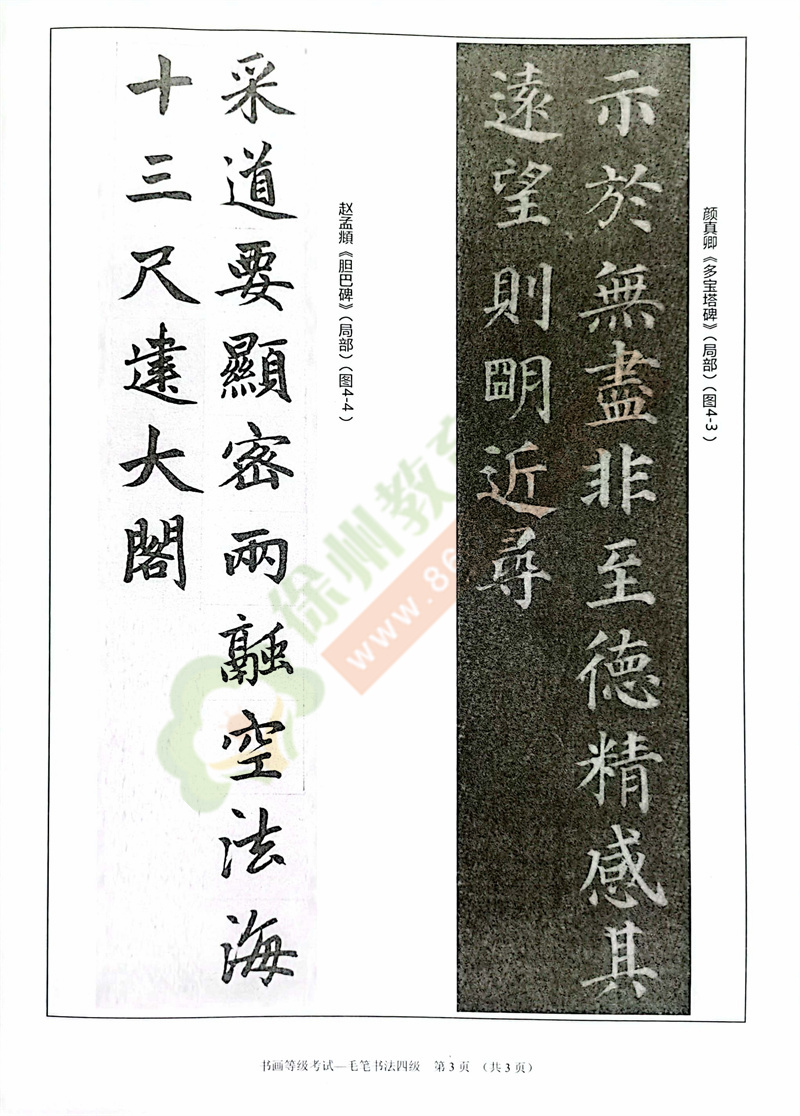 颜真卿《多宝塔碑》（局部）（图4-3）
示於無盡非至德精感其
遠望則明近尋
赵孟頫《胆巴碑》（局部）（图4-4）
采道要顯密兩融空法海
十三尺建大閣
徐州教育
www.86
书画等级考试—毛笔书法四级 第3页 （共3页）